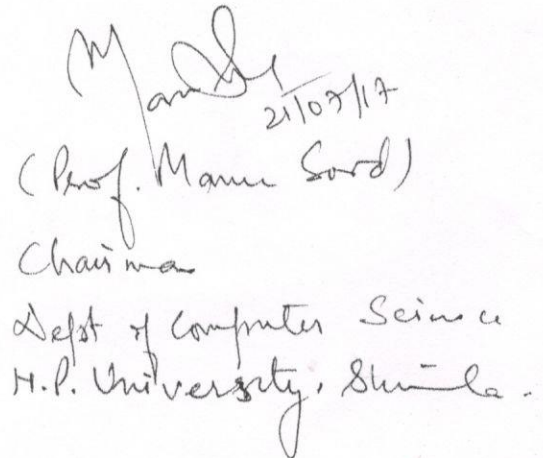 21/07/17
(Prof. Manu Sood)
Chairman
Dept of Computer Science
H.P. University, Shimla.